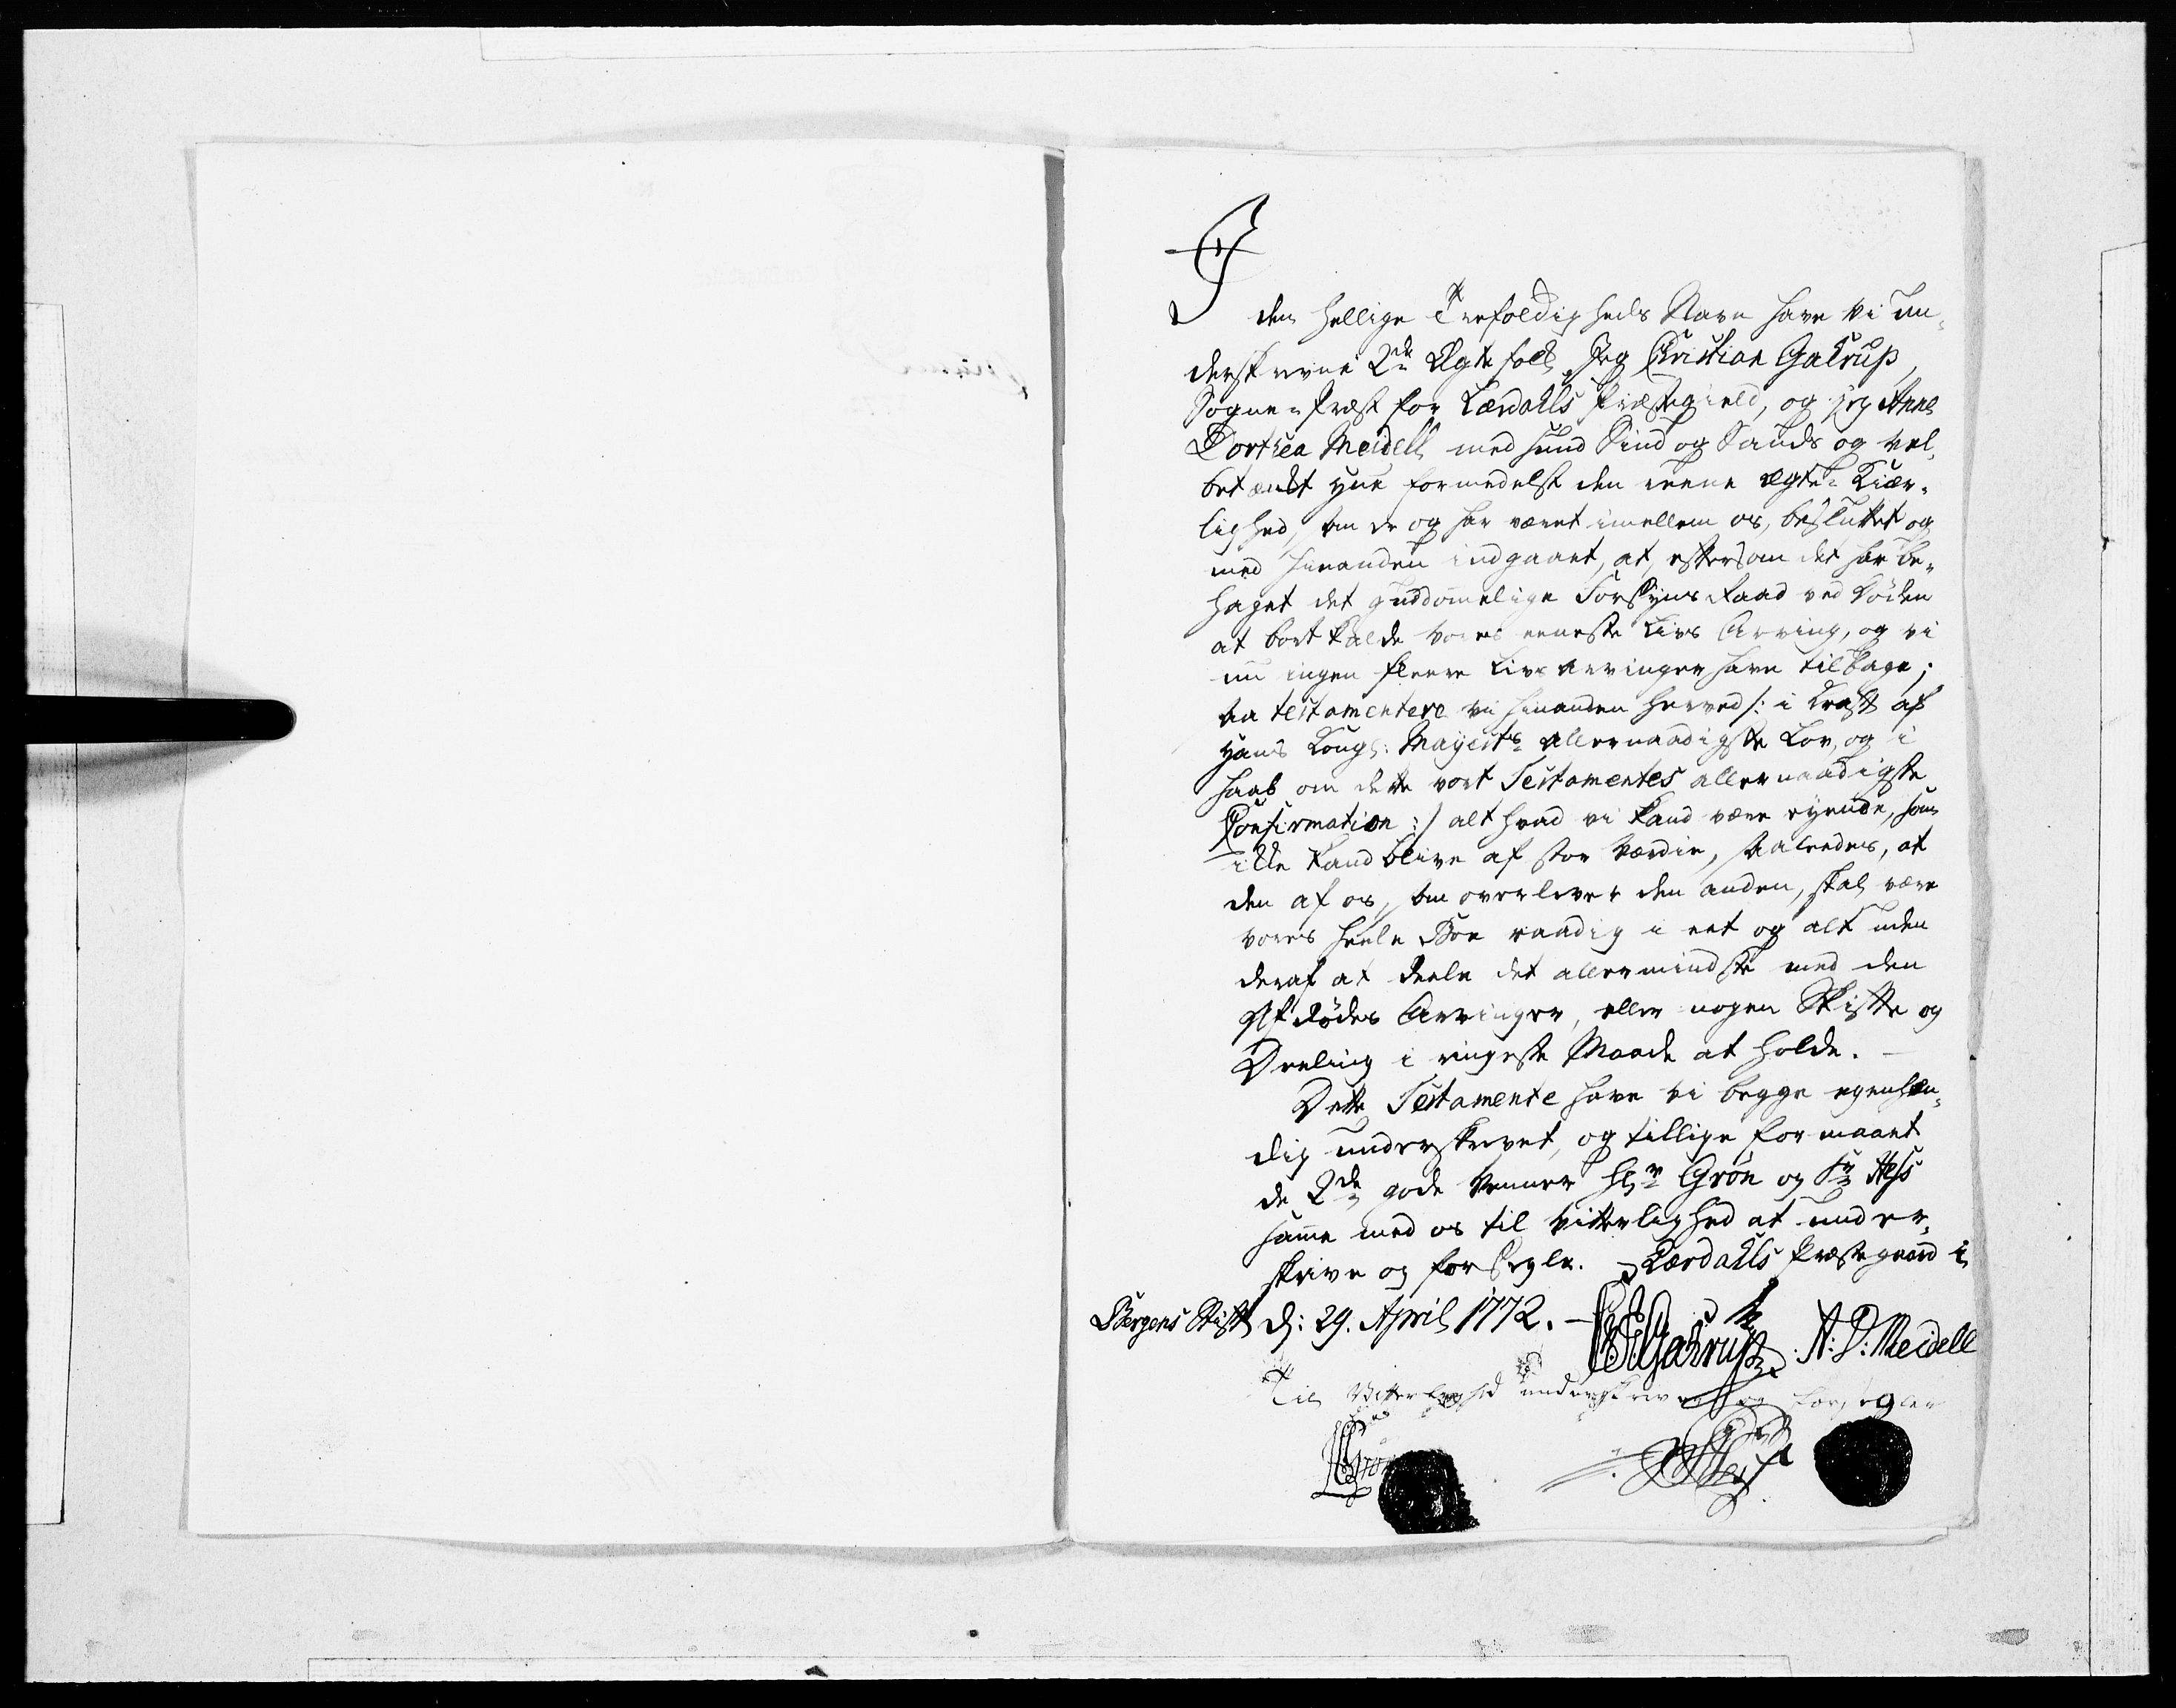 I
den hellige Trefoldigheds Navn have vi un-
derskrevne 2de Ægtefolk, Jeg Christian Gatrup,
Sogne-Præst for Lærdahls Præstegield, og jeg Anne
Dorthea Meidell med sund Sind og Sands og vel-
betænkt Hue formedelst den reene ægte- Kiær-
lighed, som er og har været imellem os, besluttet og
med hinanden indgaaet, at, eftersom det har be-
haget det guddommelige Forsyns Raad ved Døden
at bortkalde vores eeneste Livs Arving, og vi
nu ingen fleere Livs Arvinger have tilbage;
saa testamentere vi hinanden herved /: i Kraft af
Hans Kongl: Mayests allernaadigste Lov, og i
haab om dette vort Testamentes allernaadigste
Confirmation :/ alt hvad vi kand være eyende, som
ikke kand blive af stor Værdie, saaledes, at
den af os, som overlever den anden, skal være
vores heele Boe raadig i eet og alt uden
deraf at deele det allermindste med den
Afdødes Arvinger, eller nogen Skifte og
Deeling i ringeste Maade at holde. —
Dette Testamente have vi begge egenhæn-
dig underskrevet, og tillige formaaet
de 2de gode Venner Hr Grøn og Sr Hess
samme med os til Vitterlighed at under-
skrive og forsegle. Lærdahls Præstegaard i
Bergens Stift d: 29. April 1772. —
Gatrup A: D: Meidell
Til Vitterlighed underskriver og forsegler
Grøn Hess